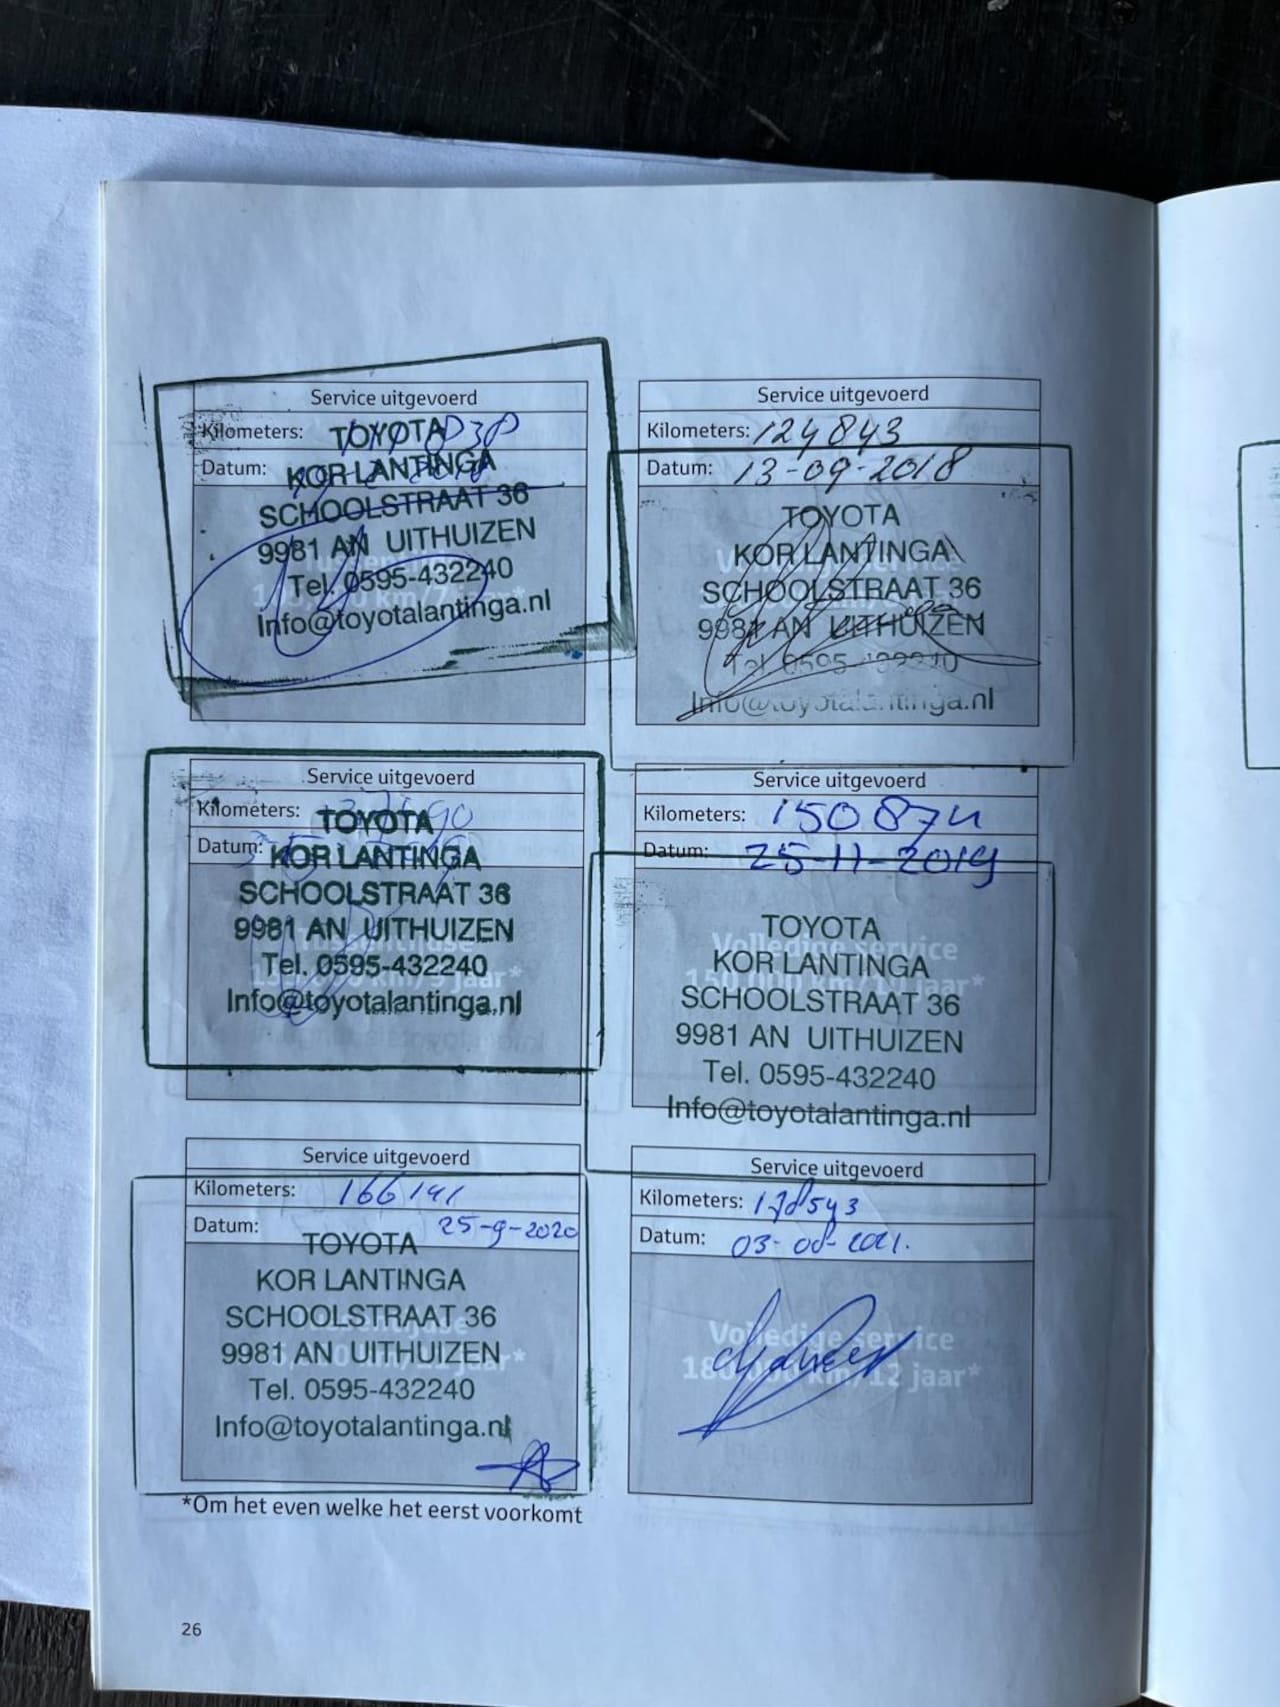 Service uitgevoerd
Kilometers:
Datum:
TOYOTA
KOR LANTINGA
SCHOOLSTRAAT 36
9981 AN UITHUIZEN
Tel. 0595-432240
Info@toyotalantinga.nl
Service uitgevoerd
Kilometers: 124843
Datum: 13-09-2018
TOYOTA
KOR LANTINGA
SCHOOLSTRAAT 36
9981 AN UITHUIZEN
Tel. 0595-432240
Info@toyotalantinga.nl
Service uitgevoerd
Kilometers:
Datum:
TOYOTA
KOR LANTINGA
SCHOOLSTRAAT 36
9981 AN UITHUIZEN
Tel. 0595-432240
Info@toyotalantinga.nl
Service uitgevoerd
Kilometers: 150874
Datum: 25-11-2019
Volledige service
150.000 km/10 jaar*
TOYOTA
KOR LANTINGA
SCHOOLSTRAAT 36
9981 AN UITHUIZEN
Tel. 0595-432240
Info@toyotalantinga.nl
Service uitgevoerd
Kilometers: 166141
Datum: 25-9-2020
TOYOTA
KOR LANTINGA
SCHOOLSTRAAT 36
9981 AN UITHUIZEN
Tel. 0595-432240
Info@toyotalantinga.nl
Service uitgevoerd
Kilometers: 178543
Datum: 03-08-2021.
Volledige service
180.000 km/12 jaar*
*Om het even welke het eerst voorkomt
26